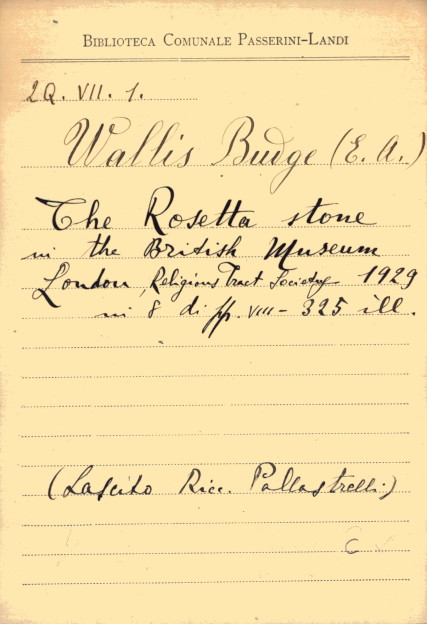 BIBLIOTECA COMUNALE PASSERINI-LANDI
2Q. VII. 1.
Wallis Budge (E. A.)
The Rosetta stone
in the British Museum
London, Religious Tract Society 1929
in 8 di pp. VIII - 325 ill.
(Lascito Ricc. Pallastrelli)
C